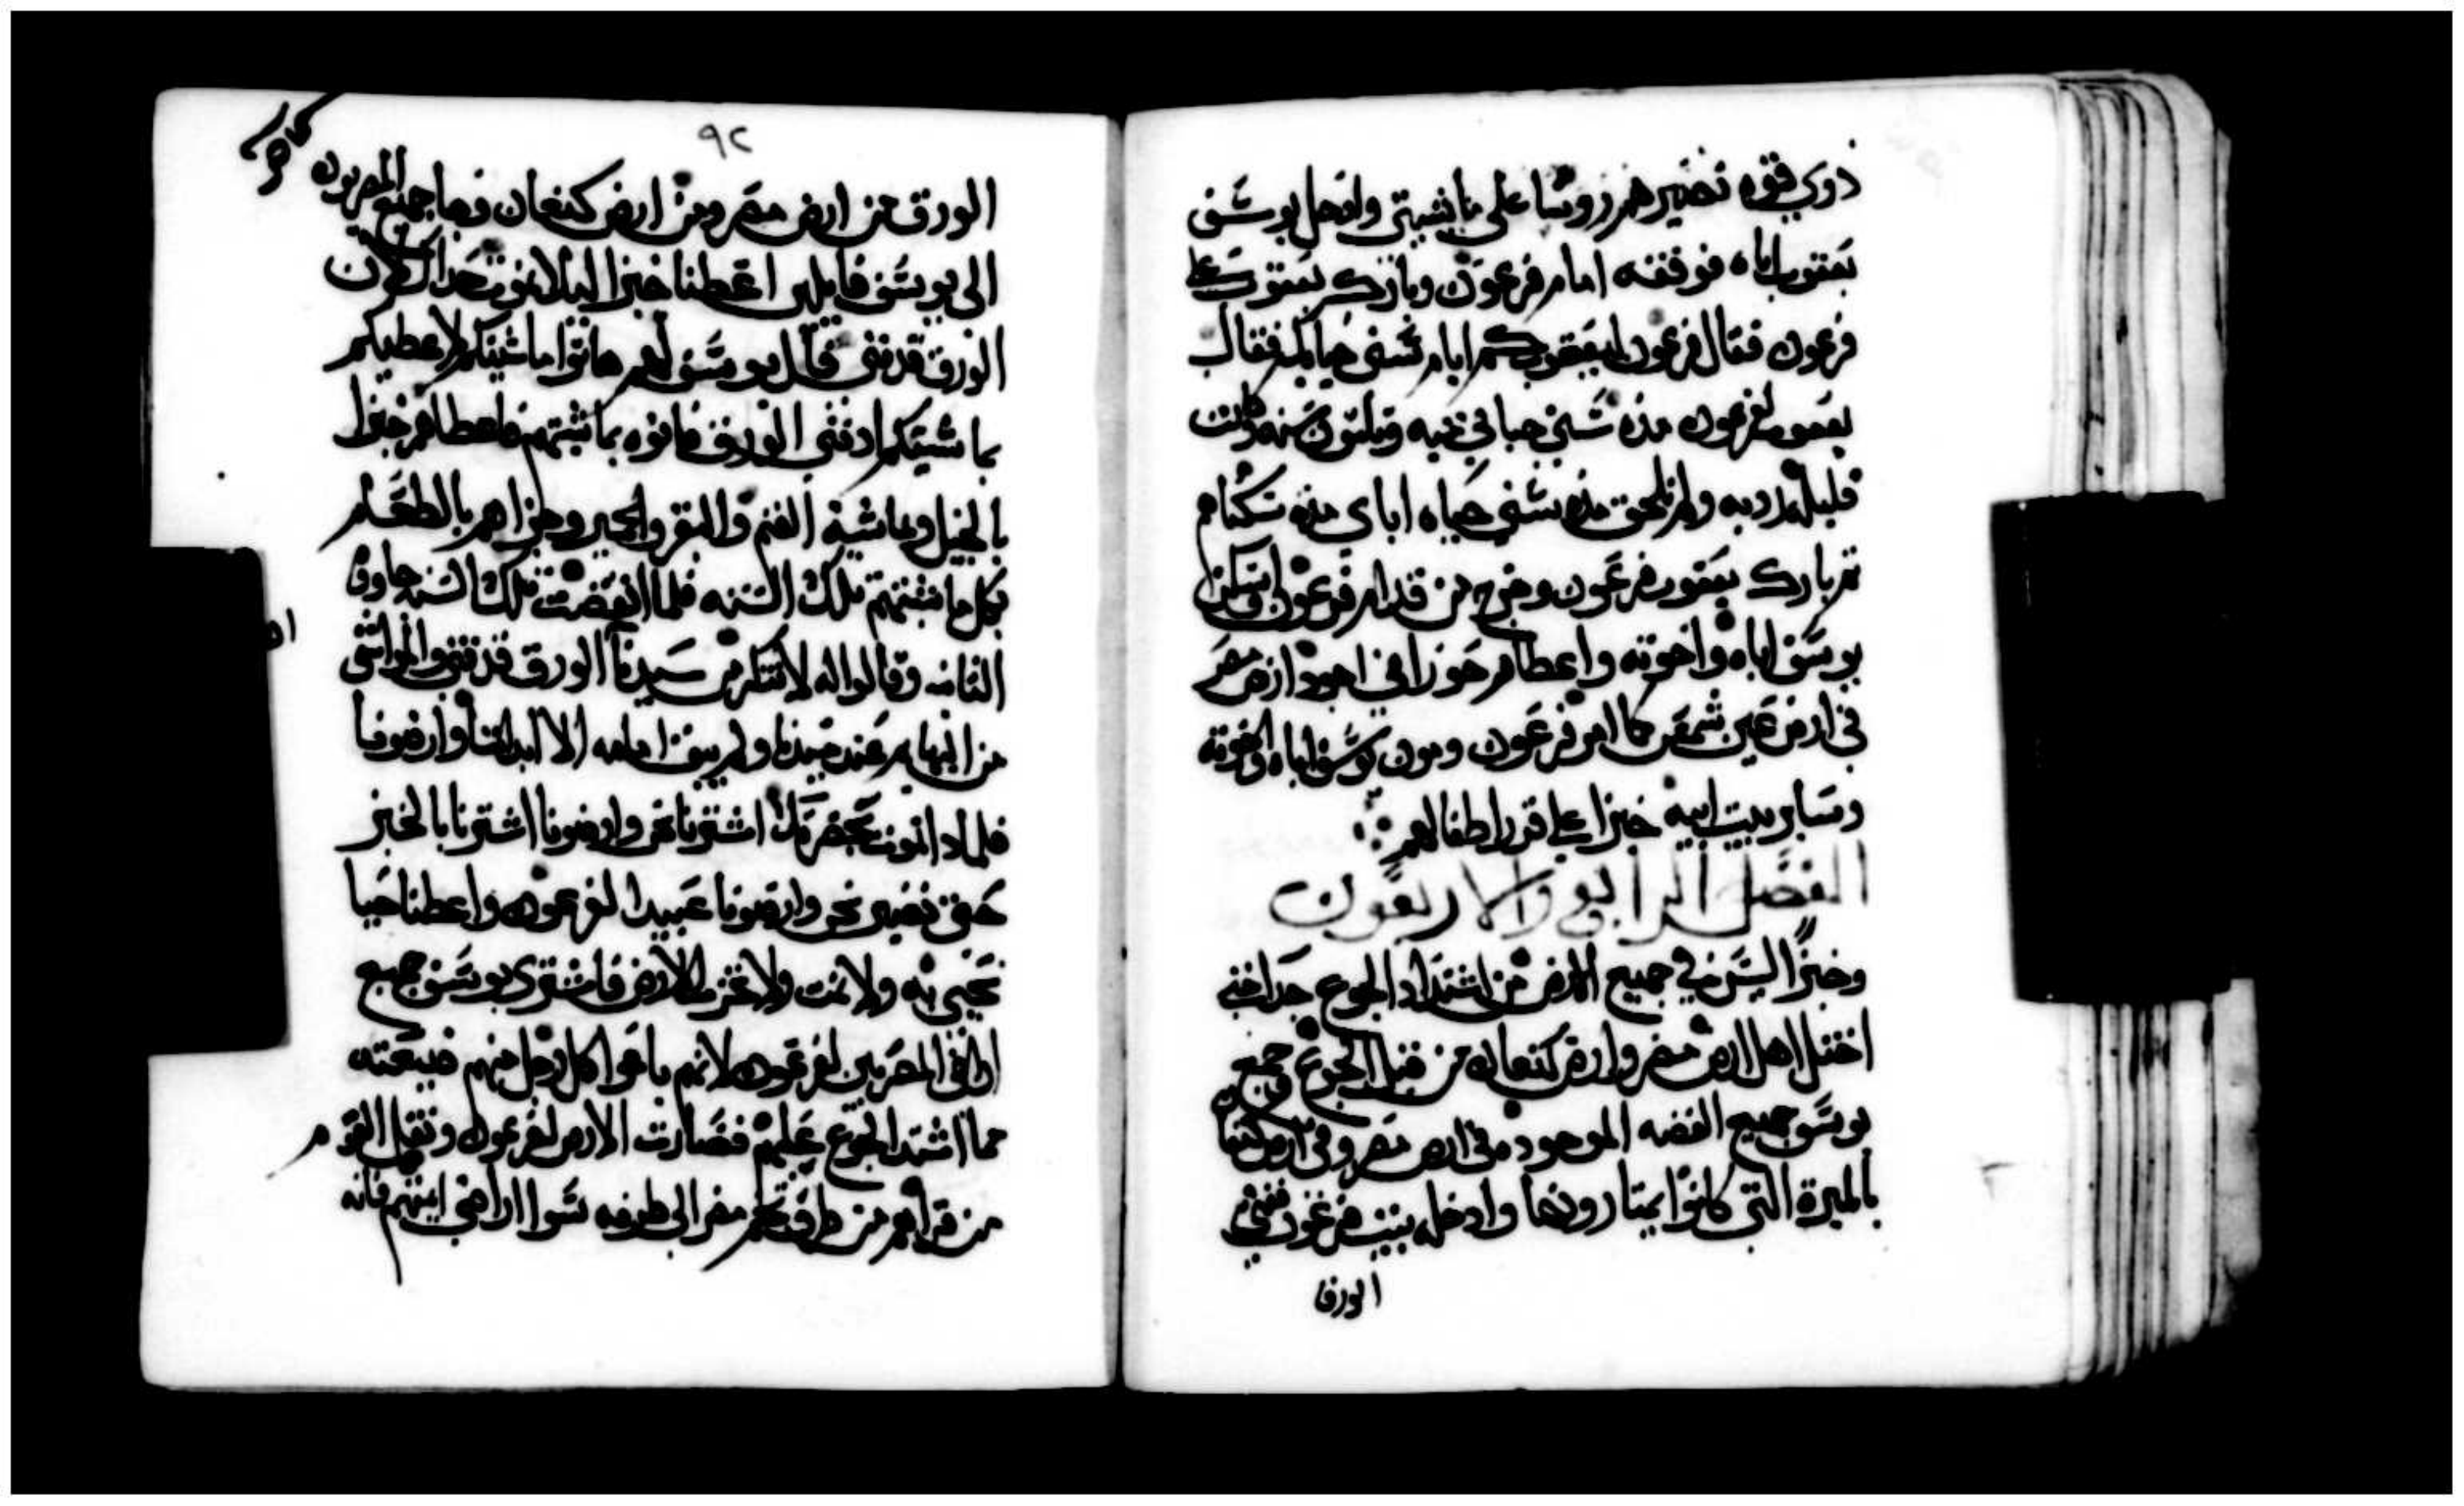 ذوي قوه تصيرهم روسا على ماشيتي وادخل يوسف
يعقوب اباه فوقفه امام فرعون وبارك يعقوب على
فرعون فقال فرعون ليعقوب كم ايام سني حياتك فقال
يعقوب لفرعون مده سني حياتي ميه وثلثون سنه كانت
قليله رديه ولم تلحق مده سني حياه اباي مده سكناهم
ثم بارك يعقوب فرعون وخرج من قدام فرعون واسكن
يوسف اباه واخوته واعطاهم حوزا في اجود ارض مصر
في ارض عين شمس كما امر فرعون ومون يوسف اباه واخوته
وساير بيت ابيه خبزا على قدر اطفالهم
الفصل الرابع والاربعون
وخبزا ليس في جميع الارض من اشتداد الجوع جدا حتى
اختل اهل ارض مصر وارض كنعان من قبل الجوع وجمع
يوسف جميع الفضه الموجوده في ارض مصر وفي ارض كنعان
بالميرة التي كانوا يمتارونها وادخله بيت فرعون ففني
الورق
٩٢
الورق من ارض مصر ومن ارض كنعان وجا جميع المصريون
الى يوسف قايلين اعطنا خبزا ليلا نموت حداك لان
الورق قد فني قال يوسف لهم هاتوا ماشيتكم لاعطيكم
بماشيتكم اذ فني الورق فاتوه بماشيتهم فاعطاهم خبزا
بالخيل وماشية الغنم والبقر والحمير وجزاهم بالطعام
بكل ماشيتهم تلك السنه فلما انقضت تلك السنه جاوه في
الثانيه وقالوا له لا ننكر من سيدنا الورق قد فني والمواشي
من البهايم عند سيدنا ولم يبق امامه الا ابداننا وارضونا
فلماذا نموت بحضرتك اشترنا نحن وارضونا اشترنا بالخبز
حتى نصير نحن وارضونا عبيدا لفرعون واعطنا حبا
نحيى به ولا نمت ولا تخرب الارض فاشترى يوسف جميع
اراضي المصريين لفرعون لانهم باعوا كل رجل منهم ضيعته
مما اشتد الجوع عليهم فصارت الارض لفرعون ونقل القوم
من قراهم من طرف تخم مصر الى طرفه سوا اراضي ايمتهم فانه